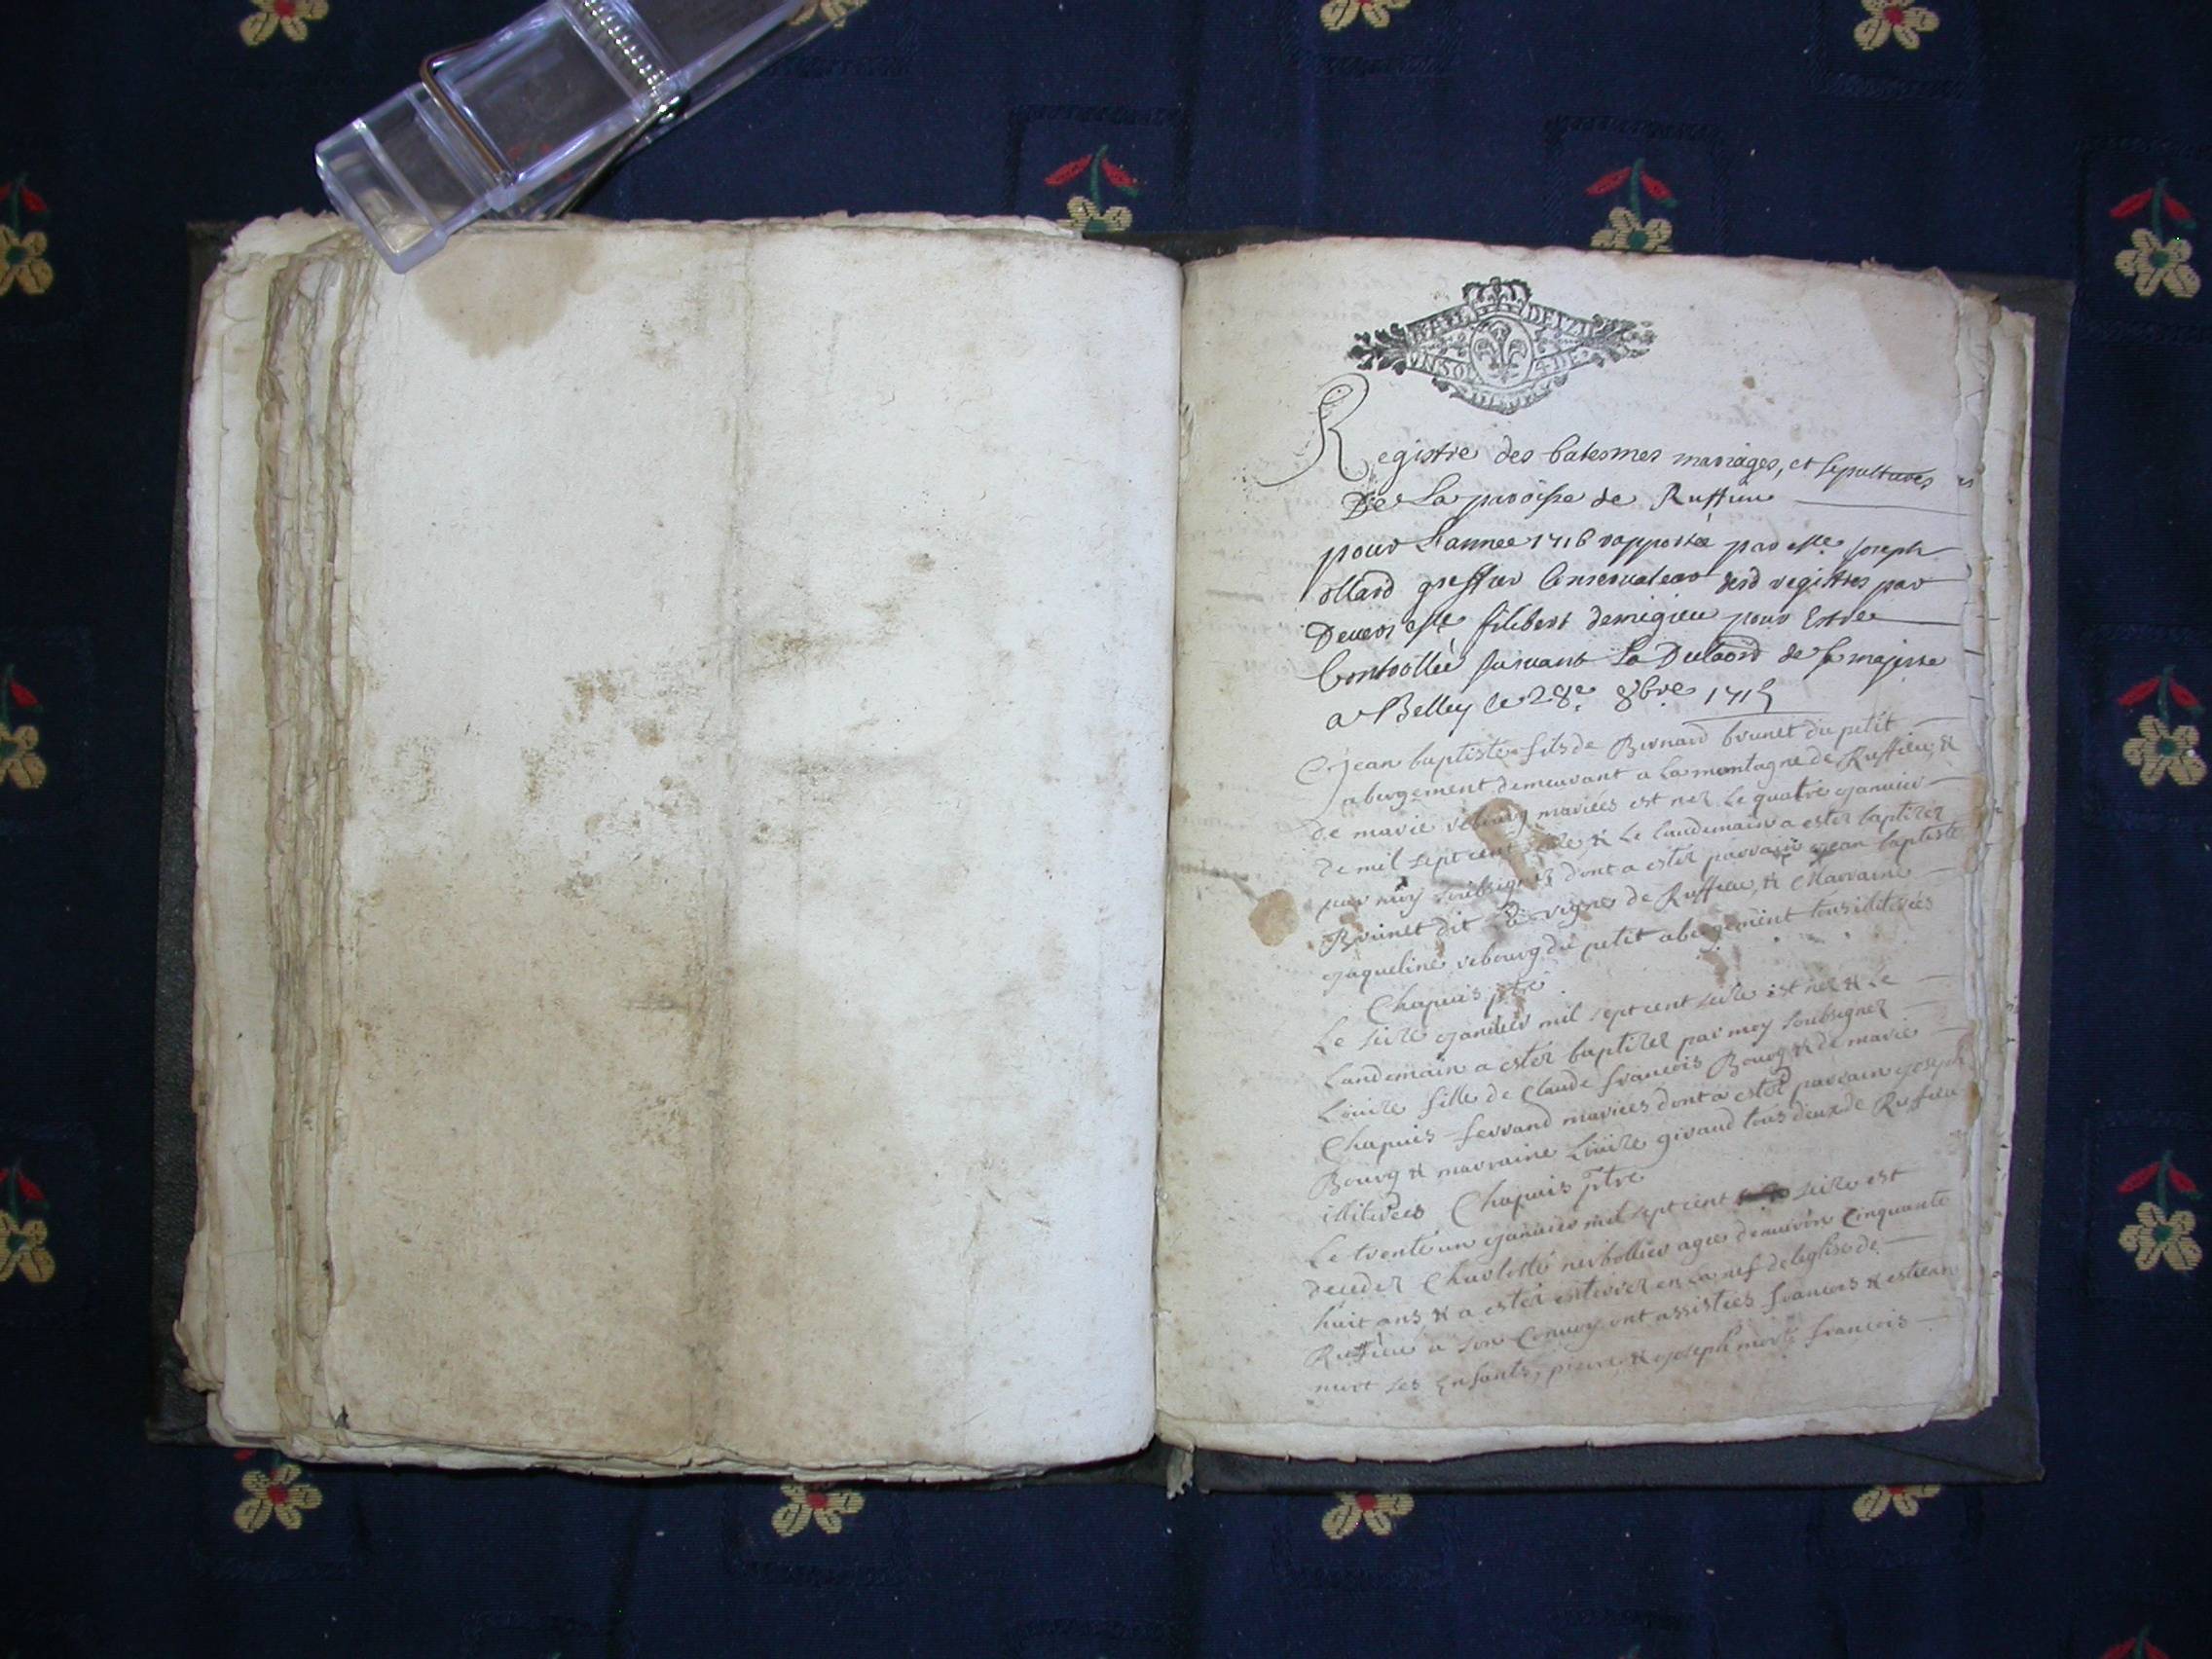 GNALL DEIZI
VNSOL 4DE
Registre des batesmes mariages, et sepultures
De La paroisse de Ruffieu
pour L'annee 1716 rapportée par Me Joseph
ollard greffier Conservateur desd registres par
Devers Me filibert demigieu pour Estre
Controllée suivant La De sa majeste
a Belley le 28e 8bre 1715
Jean baptiste fils de Bernard brunet du petit
abergement demeurant a La montagne de Ruffieu, &
de marie rebourg mariées est nez le quatre janvier
de mil sept cent & le landemain a ester baptizer
par moy soubsigner dont a ester parrain jean baptiste
Brunet dit La vigne de Ruffieu, & Marraine
jaqueline rebourg du petit abergement tous illiterées
Chapuis ptre
Le seize janvier mil sept cent seize est nez & Le
Landemain a ester baptizer par moy soubsigner
Louize fille de Claude francois Bourg & de marie
Chapuis ferrand mariées dont a ester parrain joseph
Bourg & marraine Louize giraud tous deux de Ruffieu
illiterées Chapuis ptre
Le trente un janvier mil sept cent seize est
deceder Charlotte nerbollier agee denviron Cinquante
huit ans & a ester enterrer en La nef de leglise de
Ruffieu a son Convoy ont assistées francois & estienne
niret ses Enfants, pierre & joseph francois